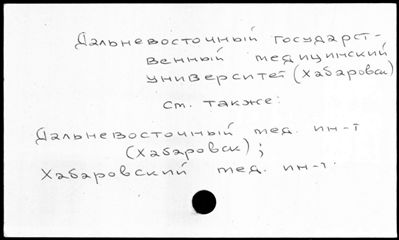 Дальневосточный государст-
венный медицинский
университет (Хабаровск)
см. также:
Дальневосточный мед. ин-т
(Хабаровск);
Хабаровский мед. ин-т.